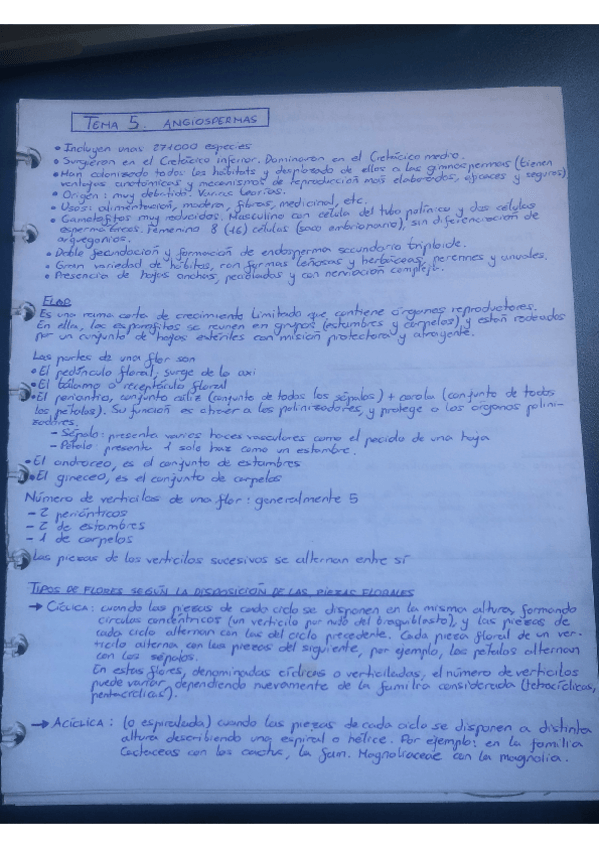 TEMA 5. ANGIOSPERMAS
• Incluyen unas 271000 especies
• Surgieron en el Cretácico inferior. Dominaron en el Cretácico medio.
• Han colonizado todos los hábitats y desplazado de ellos a las gimnospermas (tienen
ventajas anatómicas y mecanismos de reproducción más elaborados, eficaces y seguros)
• Origen: muy debatido. Varias teorías.
• Usos: alimentación, madera, fibras, medicinal, etc.
• Gametofitos muy reducidos. Masculino con célula del tubo polínico y dos células
espermáticas. Femenino 8 (16) células (saco embrionario), sin diferenciación de
arquegonios.
• Doble fecundación y formación de endosperma secundario triploide.
• Gran variedad de hábitos, con formas leñosas y herbáceas, perennes y anuales.
• Presencia de hojas anchas, pecioladas y con nerviación compleja.
FLOR
Es una rama corta de crecimiento limitado que contiene órganos reproductores.
En ella, los esporofitos se reunen en grupos (estambres y carpelos), y están rodeados
por un conjunto de hojas estériles con misión protectora y atrayente.
Las partes de una flor son
• El pedúnculo floral, surge de la axi
• El tálamo o receptáculo floral
• El periantio, conjunto cáliz (conjunto de todos los sépalos) + corola (conjunto de todos
los pétalos). Su función es atraer a los polinizadores, y protege a los órganos polini-
zadores.
- Sépalo: presenta varios haces vasculares como el peciolo de una hoja
- Pétalo: presenta 1 solo haz como un estambre.
• El androceo, es el conjunto de estambres
• El gineceo, es el conjunto de carpelos
Número de verticilos de una flor: generalmente 5
- 2 periánticos
- 2 de estambres
- 1 de carpelos
Las piezas de los verticilos sucesivos se alternan entre sí
TIPOS DE FLORES SEGÚN LA DISPOSICIÓN DE LAS PIEZAS FLORALES
→ CÍCLICA: cuando las piezas de cada ciclo se disponen en la misma altura, formando
círculos concéntricos (un verticilo por nudo del braquiblasto), y las piezas de
cada ciclo alternan con las del ciclo precedente. Cada pieza floral de un ver-
ticilo alterna con las piezas del siguiente, por ejemplo, los pétalos alternan
con los sépalos.
En estas flores, denominadas cíclicas o verticiladas, el número de verticilos
puede variar, dependiendo nuevamente de la familia considerada (tetracíclicas,
pentacíclicas).
→ ACÍCLICA: (o espiralada) cuando las piezas de cada ciclo se disponen a distinta
altura describiendo una espiral o hélice. Por ejemplo: en la familia
Cactaceae con los cactus, la fam. Magnoliaceae con la magnolia.